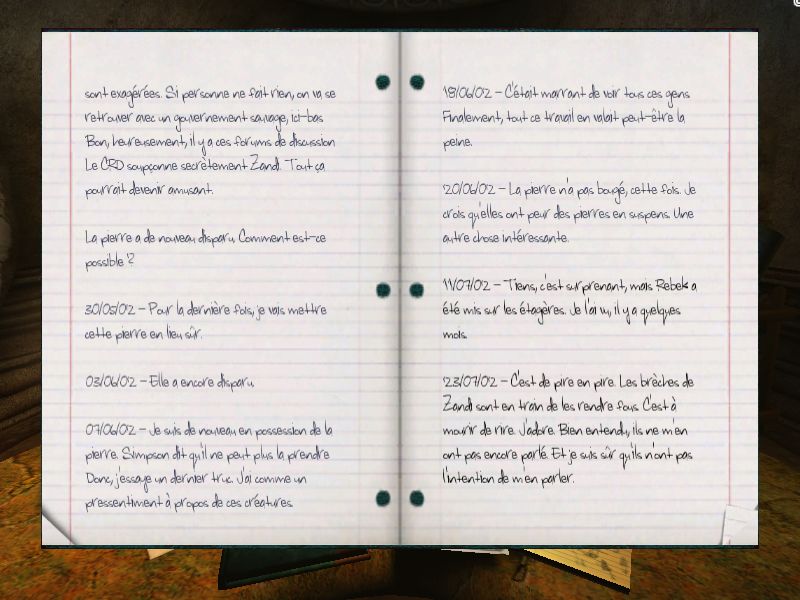 sont exagérées. Si personne ne fait rien, on va se
retrouver avec un gouvernement sauvage, ici-bas
Bon, heureusement, il y a ces forums de discussion
Le CRD soupçonne secrètement Zandi. Tout ça
pourrait devenir amusant.
La pierre a de nouveau disparu. Comment est-ce
possible ?
30/05/02 – Pour la dernière fois, je vais mettre
cette pierre en lieu sûr.
03/06/02 – Elle a encore disparu
07/06/02 – Je suis de nouveau en possession de la
pierre. Simpson dit qu'il ne peut plus la prendre
Donc, j'essaye un dernier truc. J'ai comme un
pressentiment à propos de ces créatures.
18/06/02 – C'était marrant de voir tous ces gens
Finalement, tout ce travail en valait peut-être la
peine.
20/06/02 – La pierre n'a pas bougé, cette fois. Je
crois qu'elles ont peur des pierres en suspens. Une
autre chose intéressante.
11/07/02 – Tiens, c'est surprenant, mais Rebek a
été mis sur les étagères. Je l'ai vu, il y a quelques
mois.
23/07/02 – C'est de pire en pire. Les brèches de
Zandi sont en train de les rendre fous. C'est à
mourir de rire. J'adore. Bien entendu, ils ne m'en
ont pas encore parlé. Et je suis sûr qu'ils n'ont pas
l'intention de m'en parler.